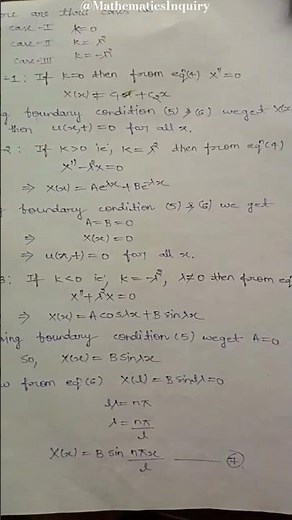 @MathematicsInquiry
are three cases
case-I k=0
case-II k=λ²
case-III k=-λ²
-1: If k=0 then from eqⁿ(4) X''=0
X(x) = C₁ + C₂x
boundary condition (5) & (6) we get X(x)
then u(x,t)=0 for all x.
-2: If k>0 ie, k=λ² then from eqⁿ(4)
X''-λ²x=0
⇒ X(x) = Ae^λx + Be^-λx
boundary condition (5) & (6) we get
A=B=0
⇒ X(x)=0
⇒ u(x,t)=0 for all x.
3: If k<0 ie, k=-λ², λ≠0 then from eq
X''+λ²x=0
⇒ X(x) = A cosλx + B sinλx
ing boundary condition (5) we get A=0
So, X(x) = B sinλx
w from eqⁿ(6) X(l) = B sinlλ=0
lλ=nπ
λ=nπ/l
X(x) = B sin nπx/l —— (7)